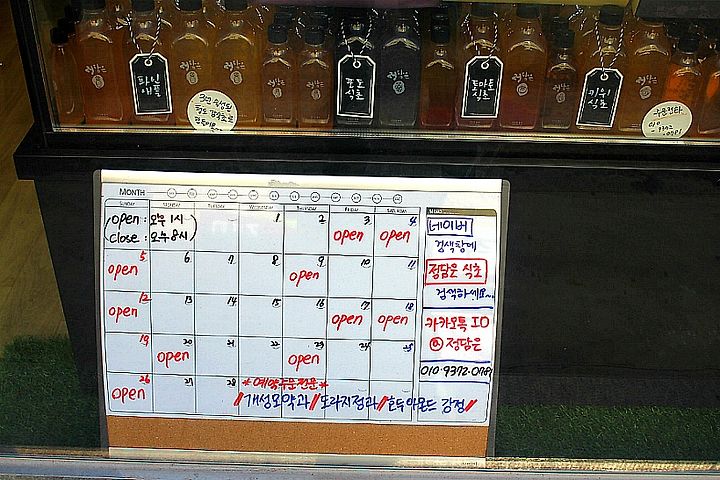 파인
애플
정담은
포도
식초
정담은
토마토
식초
정담은
키위
식초
주문전화
010
9372
0781
MONTH
SUNDAY MONDAY TUESDAY WEDNESDAY THURSDAY FRIDAY SATURDAY
open : 오후 1시
close : 오후 8시
1 2 3 4
open open
5 6 7 8 9 10 11
open open
12 13 14 15 16 17 18
open open open
19 20 21 22 23 24 25
open open
26 27 28
open
*예약주문전문*
//개성모약과//도라지정과//호두아몬드 강정//
MEMO
네이버
검색창에
정담은 식초
검색하세요~
카카오톡 ID
@정담은
010-9372-0781